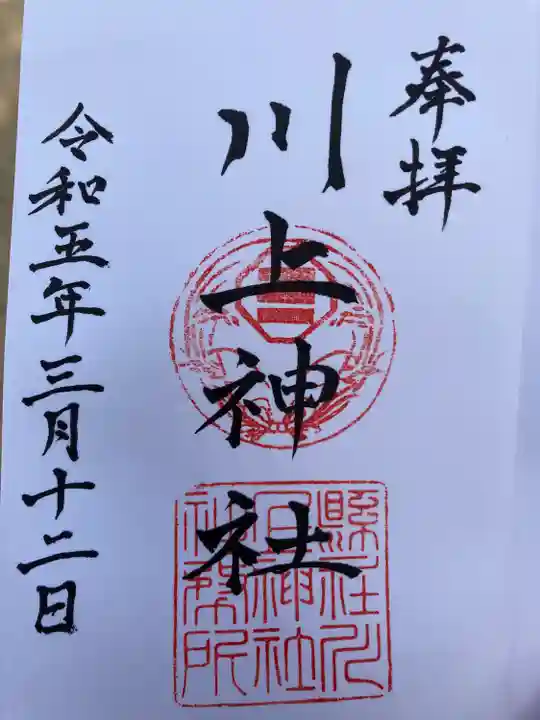 奉拝
川上神社
縣社川上神社社務所
令和五年三月十二日